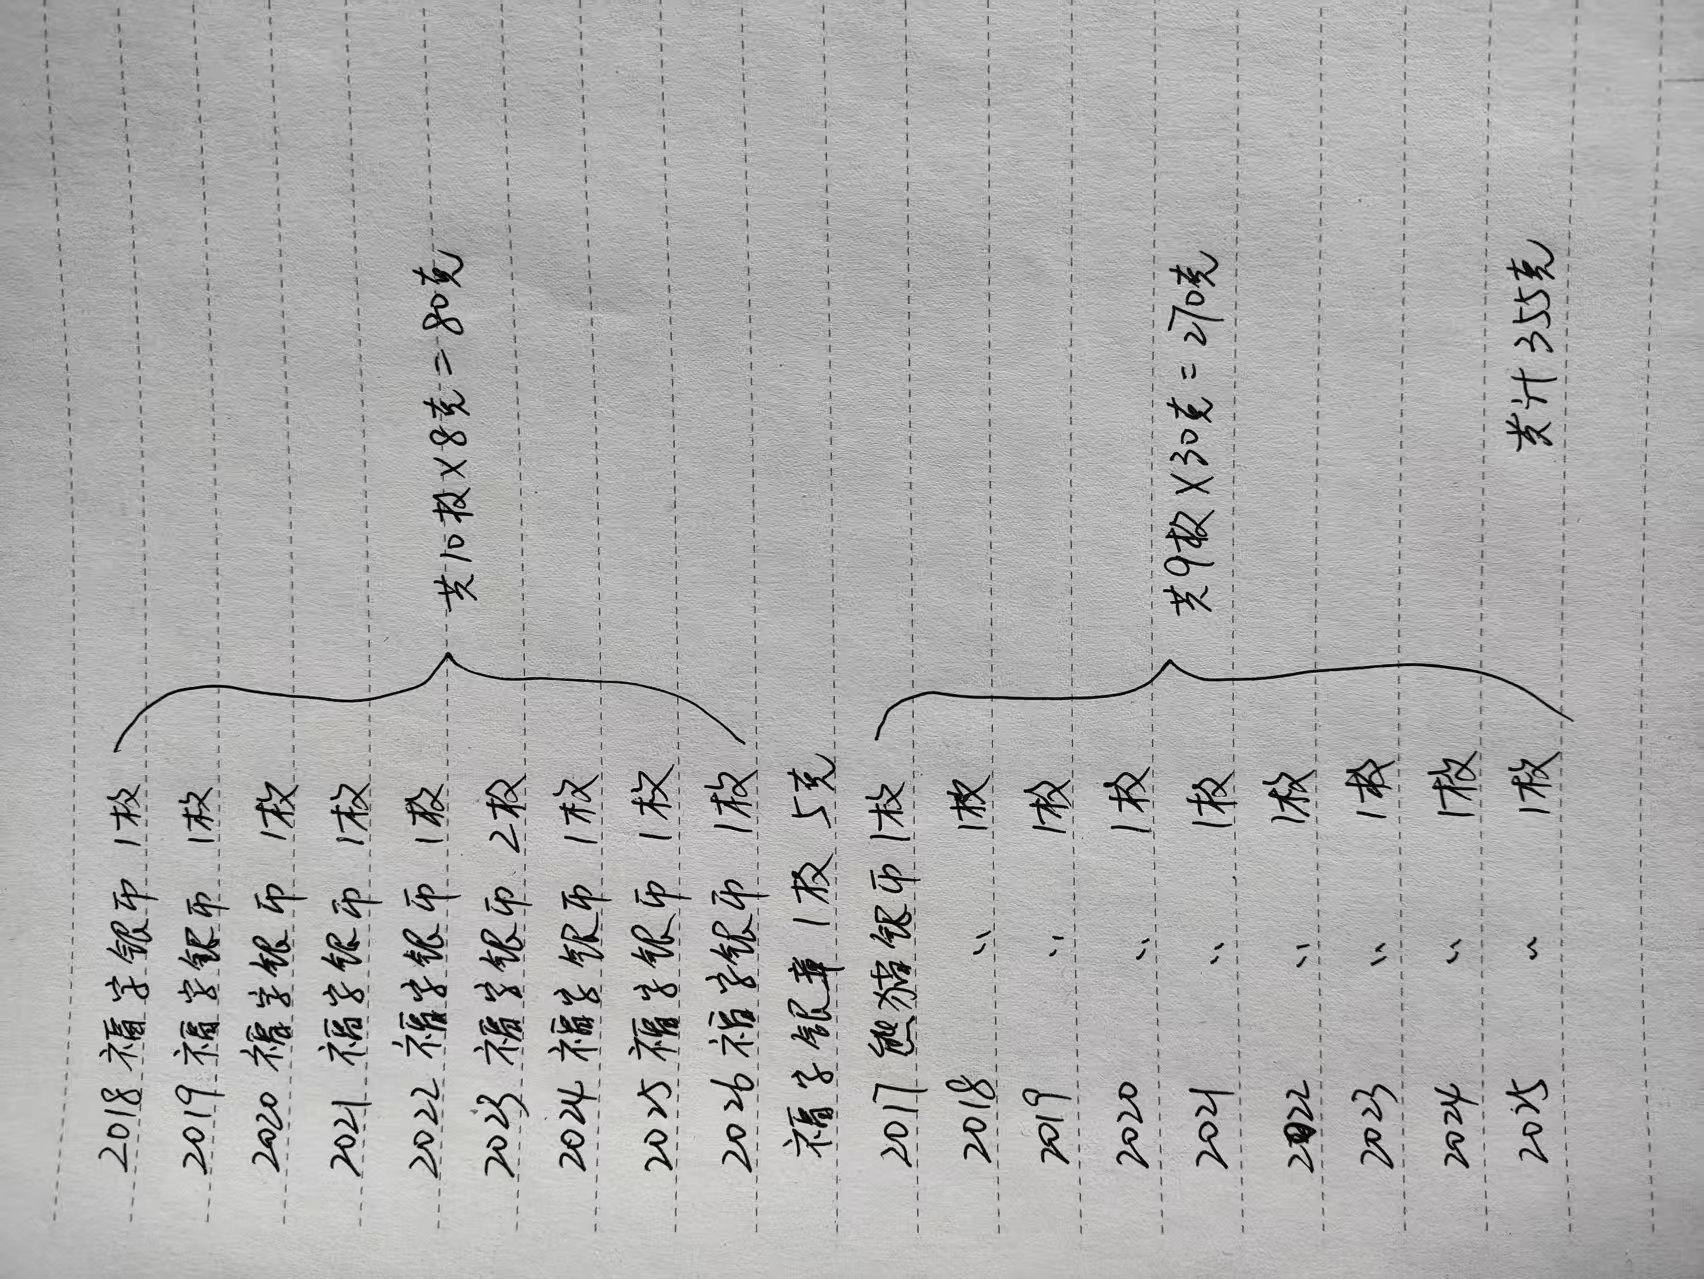 2018 福字银币 1枚
2019 福字银币 1枚
2020 福字银币 1枚
2021 福字银币 1枚
2022 福字银币 1枚
2023 福字银币 2枚
2024 福字银币 1枚
2025 福字银币 1枚
2026 福字银币 1枚
共10枚×8克=80克
福字银章 1枚 5克
2017 熊猫银币 1枚
2018 〃 1枚
2019 〃 1枚
2020 〃 1枚
2021 〃 1枚
2022 〃 1枚
2023 〃 1枚
2024 〃 1枚
2025 〃 1枚
共9枚×30克=270克
共计355克